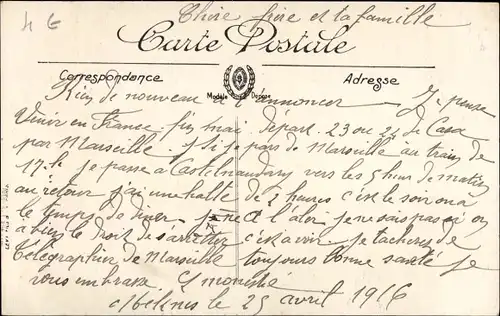 4 €
Chère frère et ta famille
Carte Postale
Correspondance
Adresse
Modèle Déposé
Rien de nouveau à annoncer Je pense
venir en France fin mai. Départ 23 ou 24 de Casa
par Marseille. Si je pars de Marseille au train de
17 h. je passe à Castelnaudary vers les 5 heur de matin
au retour j'ai une halte de 2 heures c'est le soir on a
le temps de diner. à l'aler je ne sais pas si on
le droit de s'arreter c'est a voir. Je tacherez de
télégraphier de Marseille toujours bonne santé je
vous embrasse.
le 25 avril 1916